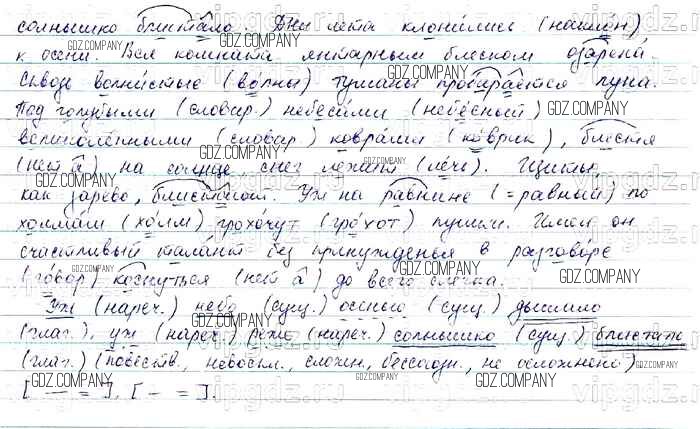 солнышко блистало. Дни лета клонились (наклон)
к осени. Вся комната янтарным блеском озарена.
Сквозь волнистые (волны) туманы пробирается луна.
Под голубыми (словар.) небесами (небесный)
великолепными (словар.) коврами (коврик), блестя
(нет а) на солнце снег лежит (лечь). Щиты,
как зарево, блистают. Уж на равнине (=равный) по
холмам (холм) грохочут (грохот) пушки. Имел он
счастливый талант без принужденья в разговоре
(говор) коснуться (нет а) до всего слегка.
Уж (нареч.) небо (сущ.) осенью (сущ.) дышало
(глаг.), уж (нареч.) реже (нареч.) солнышко (сущ.) блистало
(глаг.) (повеств., невоскл., сложн., бессоюзн., не осложнено)
[ — = ], [ — = ].
GDZ.COMPANY
vipgdz.ru